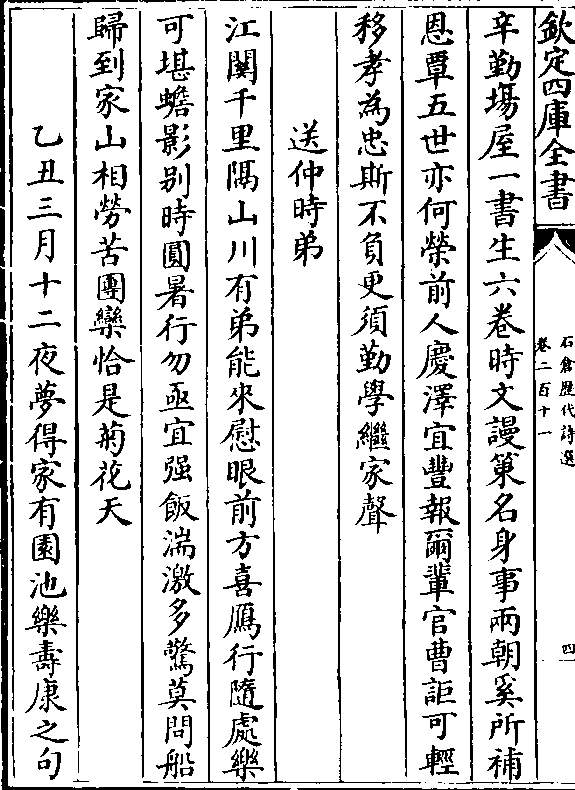 欽定四庫全書
石倉歷代詩選
卷二百十一
四
辛勤場屋一書生六卷時文謾策名身事兩朝奚所補
恩覃五世亦何榮前人慶澤宜豐報爾輩官曹詎可輕
移孝為忠斯不負更須勤學繼家聲
送仲時弟
江關千里隔山川有弟能來慰眼前方喜鴈行隨處樂
可堪蟾影别時圓暑行勿亟宜强飯湍激多驚莫問船
歸到家山相勞苦團欒恰是菊花天
乙丑三月十二夜夢得家有園池樂壽康之句